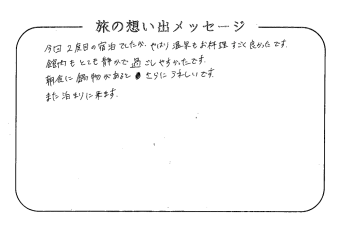 旅の想い出メッセージ
今回2度目の宿泊でしたが、やはり温泉もお料理すごく良かったです。
館内もとても静かで過ごしやすかったです。
朝食に鍋物があると さらにうれしいです。
また泊まりに来ます。